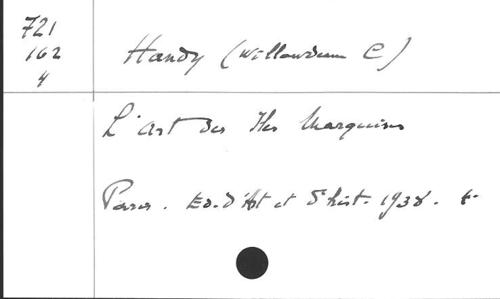 721
162
4
Handy (Willowdean C)
L'art des Iles Marquises
Paris. Ed. d'Art et d'hist. 1938. 4°